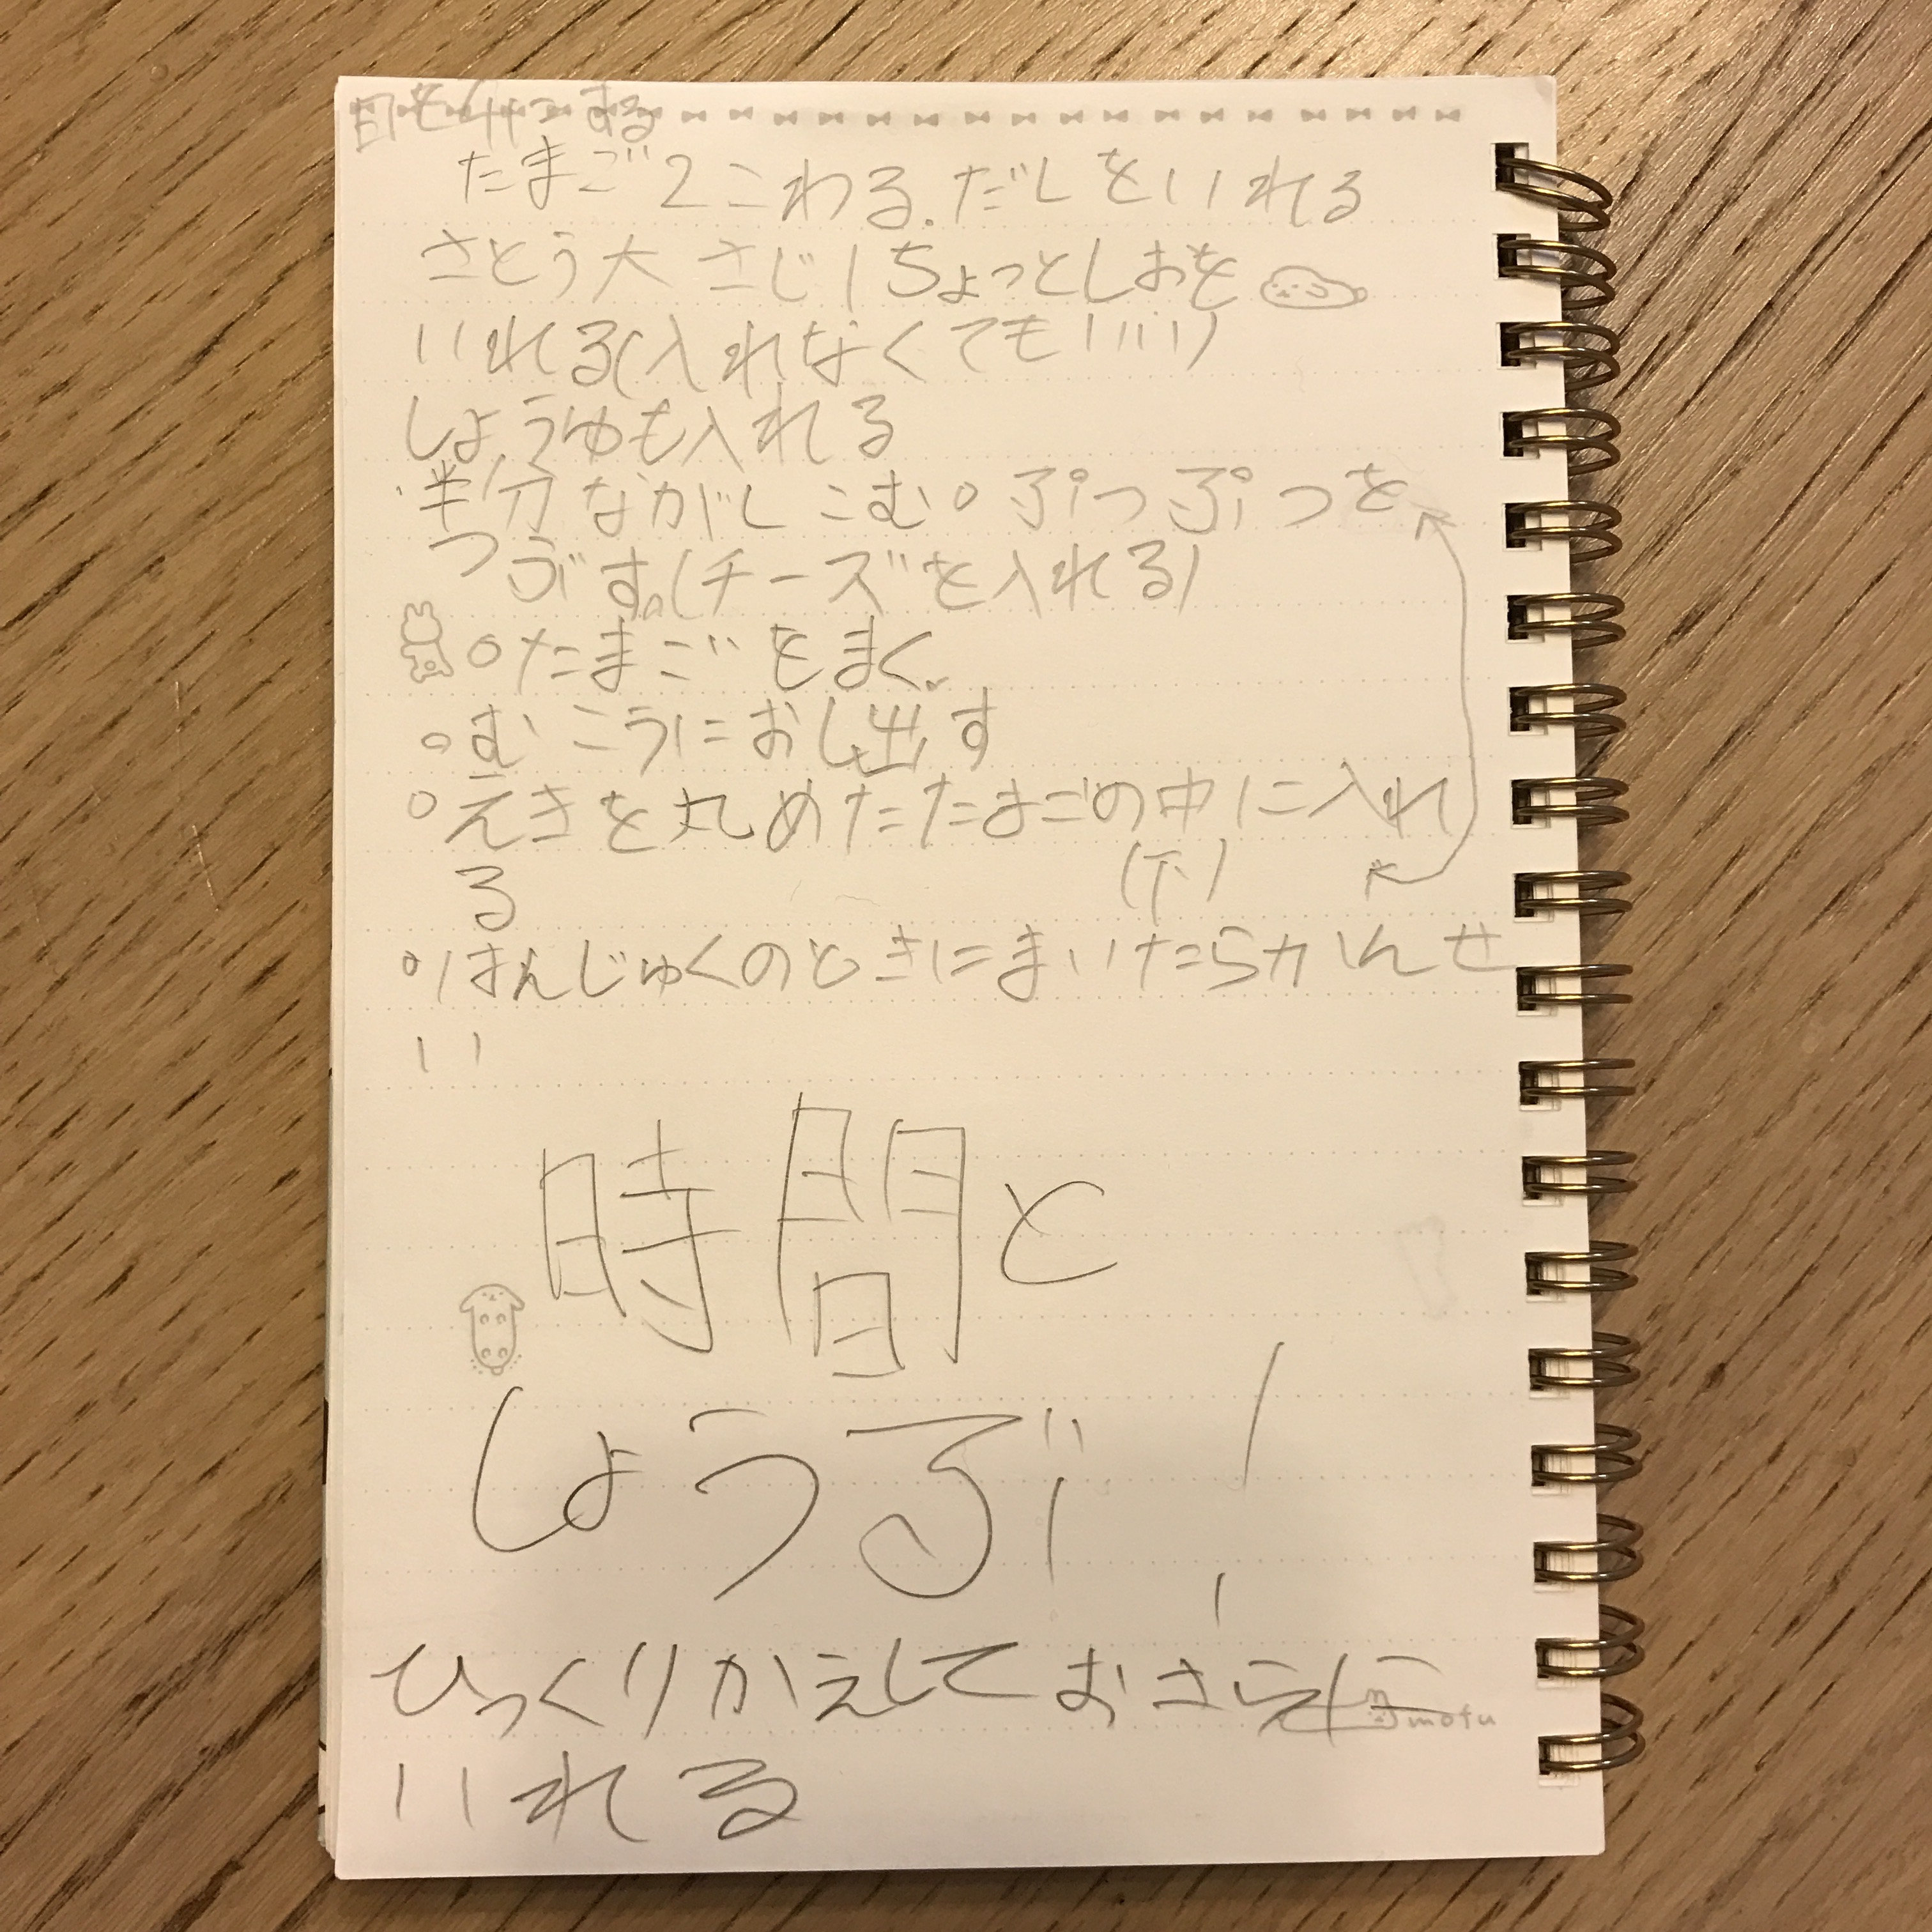 たまご2こわる.だしをいれる
さとう大さじ1ちょっとしおを
いれる(入れなくてもいい)
しょうゆも入れる
・半分ながしこむ。ぷつぷつを
つぶす。(チーズを入れる)
○たまごをまく。
○むこうにおし出す
○えきを丸めたたまごの中に入れ
る
(下)
○はんじゅくのときにまいたらかんせ
い
時間と
しょうぶ!
ひっくりかえしておさらに
いれる
mofu